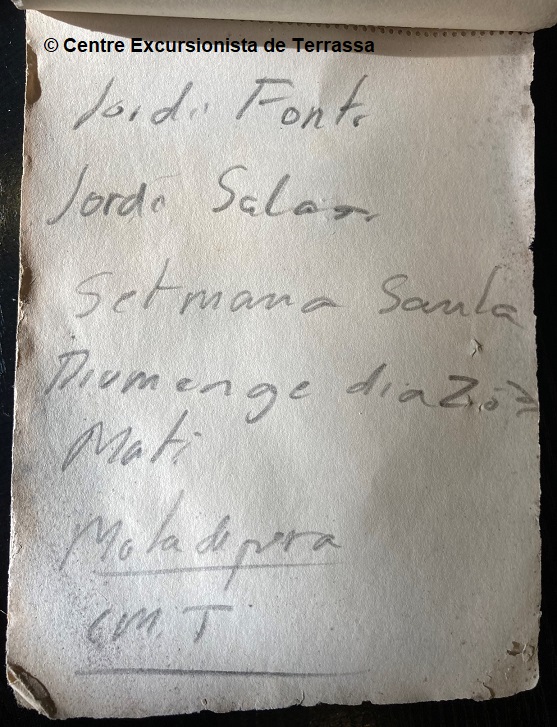 © Centre Excursionista de Terrassa
Jordi Font.
Jordi
Setmana Santa
Diumenge dia
Mati
C.M.T